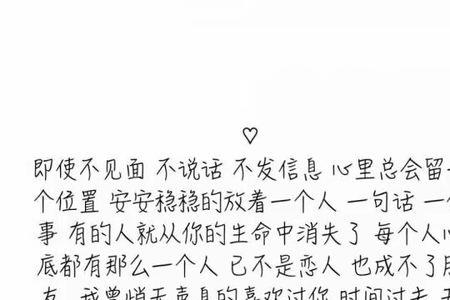 ♡
即使不见面 不说话 不发信息 心里总会留
个位置 安安稳稳的放着一个人 一句话 一
事 有的人就从你的生命中消失了 每个人心
底都有那么一个人 已不是恋人 也成不了朋
友 我曾悄无声息的喜欢过你 时间过去